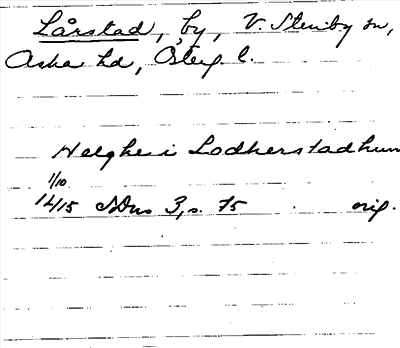 Lårstad, by, V. Stenby sn,
Aska hd, Österg. l.
Helghe i Lodherstadhum
1/10
1415 SDns 3, s. 75 orig.